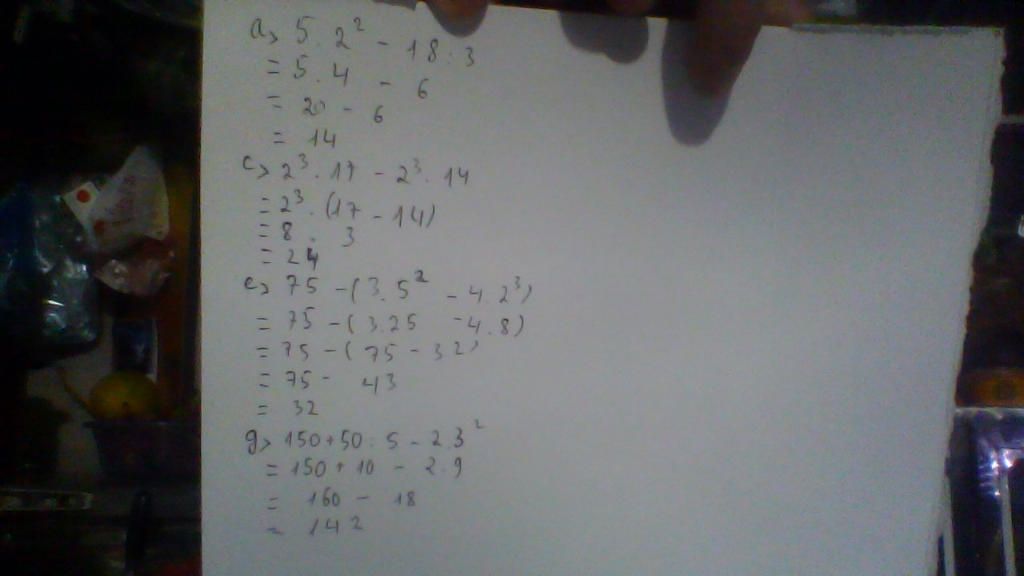 a> 5 . 2² - 18 : 3
= 5 . 4 - 6
= 20 - 6
= 14
c> 2³ . 17 - 2³ . 14
= 2³ . (17 - 14)
= 8 . 3
= 24
e> 75 - (3 . 5² - 4 . 2³)
= 75 - (3.25 - 4.8)
= 75 - (75 - 32)
= 75 - 43
= 32
g> 150 + 50 : 5 - 2.3²
= 150 + 10 - 2.9
= 160 - 18
= 142